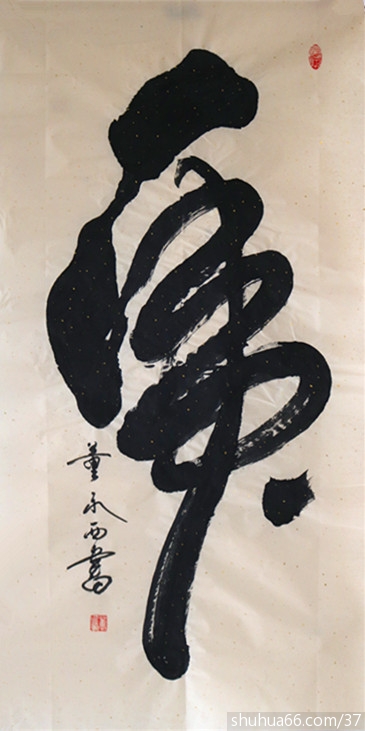 虎
董永西
shuhua66.com/37